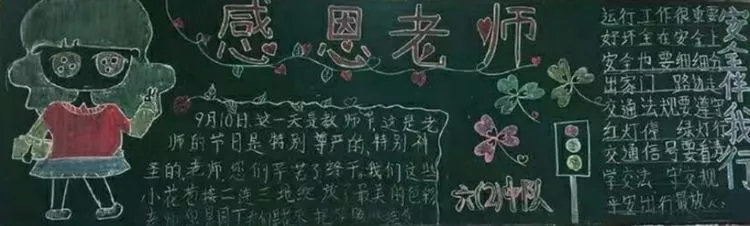 感恩老师
9月10日这一天是教师节,这是老
师的节日是特别尊严的,特别神
圣的老师,您们辛苦了终于,我们这些
小花苞接二连三地绽放了最美的色彩
六(2)中队
安全伴我行
运行工作很重要
好坏全在安全上
安全也要细细分
出家门 路边走
交通法规要遵守
红灯停 绿灯行
交通信号要看清
学交法 守交规
平安出行最放心